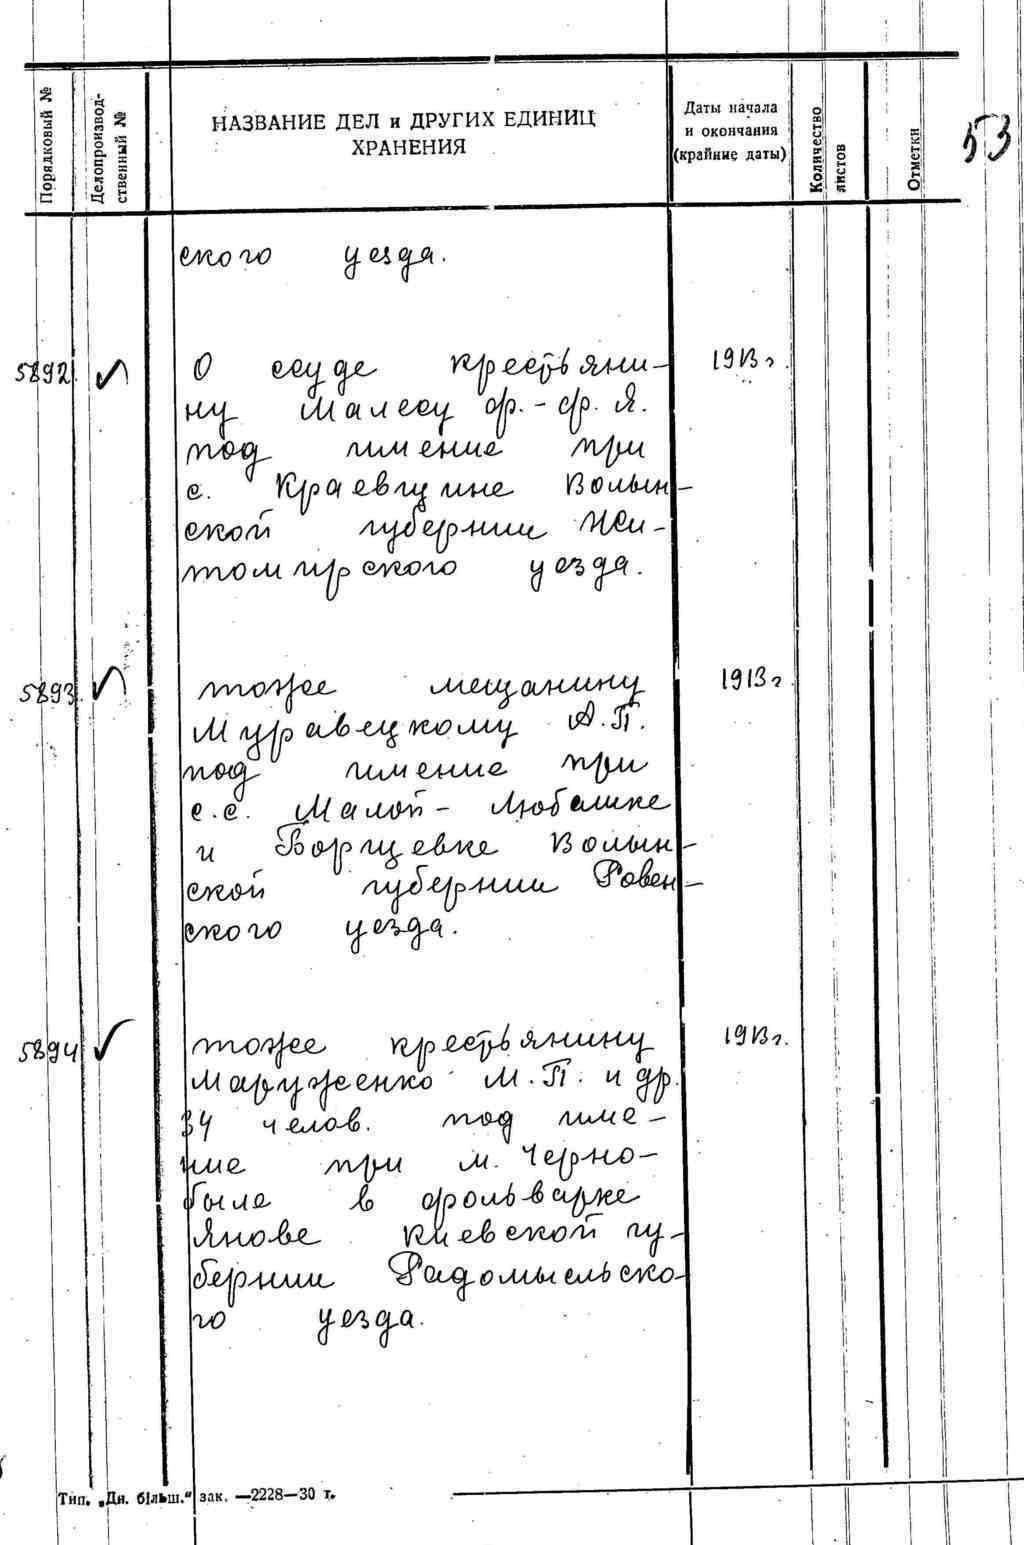 Порядковый №
Делопроизвод-
ственный №
НАЗВАНИЕ ДЕЛ и ДРУГИХ ЕДИНИЦ
ХРАНЕНИЯ
Даты начала
и окончания
(крайние даты)
Количество
листов
Отметки
53
ского уезда.
5892 О ссуде крестьяни- 1913 г.
ну Малесу ф.-ф. Я.
под имение при
с. Краевщине Волын-
ской губернии Жи-
томирского уезда.
5893 тоже мещанину 1913 г.
Муравецкому А.П.
под имение при
с.с. Малой - Любашке
и Борщевке Волын-
ской губернии Ровен-
ского уезда.
5894 тоже крестьянину 1913 г.
Маруженко М.П. и др.
34 челов. под име-
ние при м. Черно-
быле в фольварке
Янове Киевской гу-
бернии Радомысльско-
го уезда.
Тип. „Дн. більш." зак. —2228—30 т.